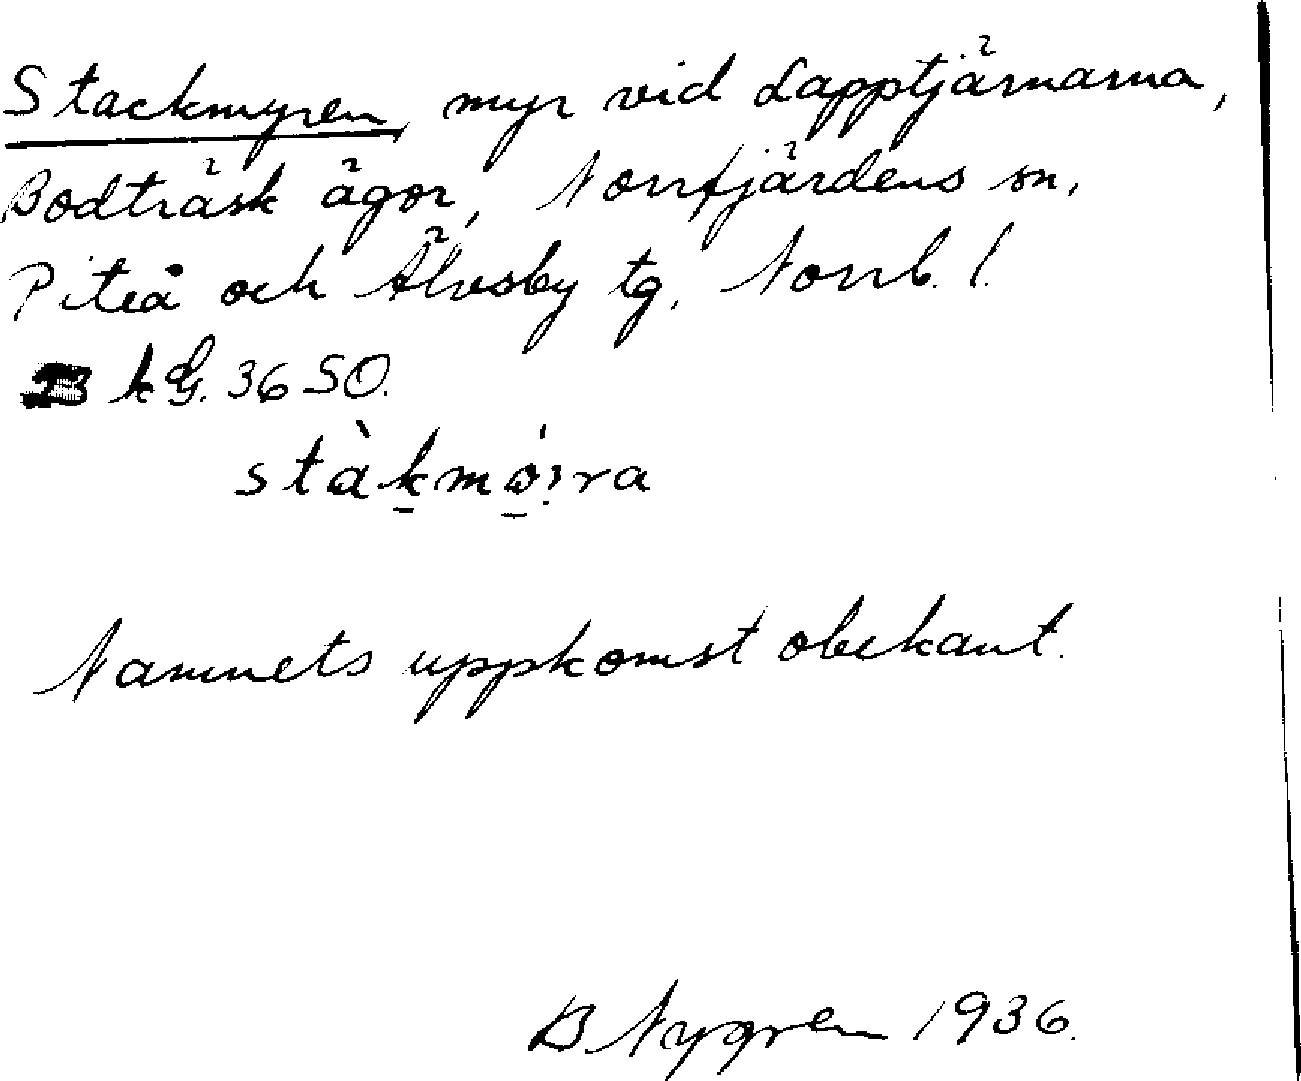 Stackmyren, myr vid Lapptjärnarna,
Bodträsk ägor, Norrfjärdens sn,
Piteå och Älvsby tg. Norrb. l.
kG. 36 SO.
stàkmǿira
Namnets uppkomst obekant.
B Nygren 1936.